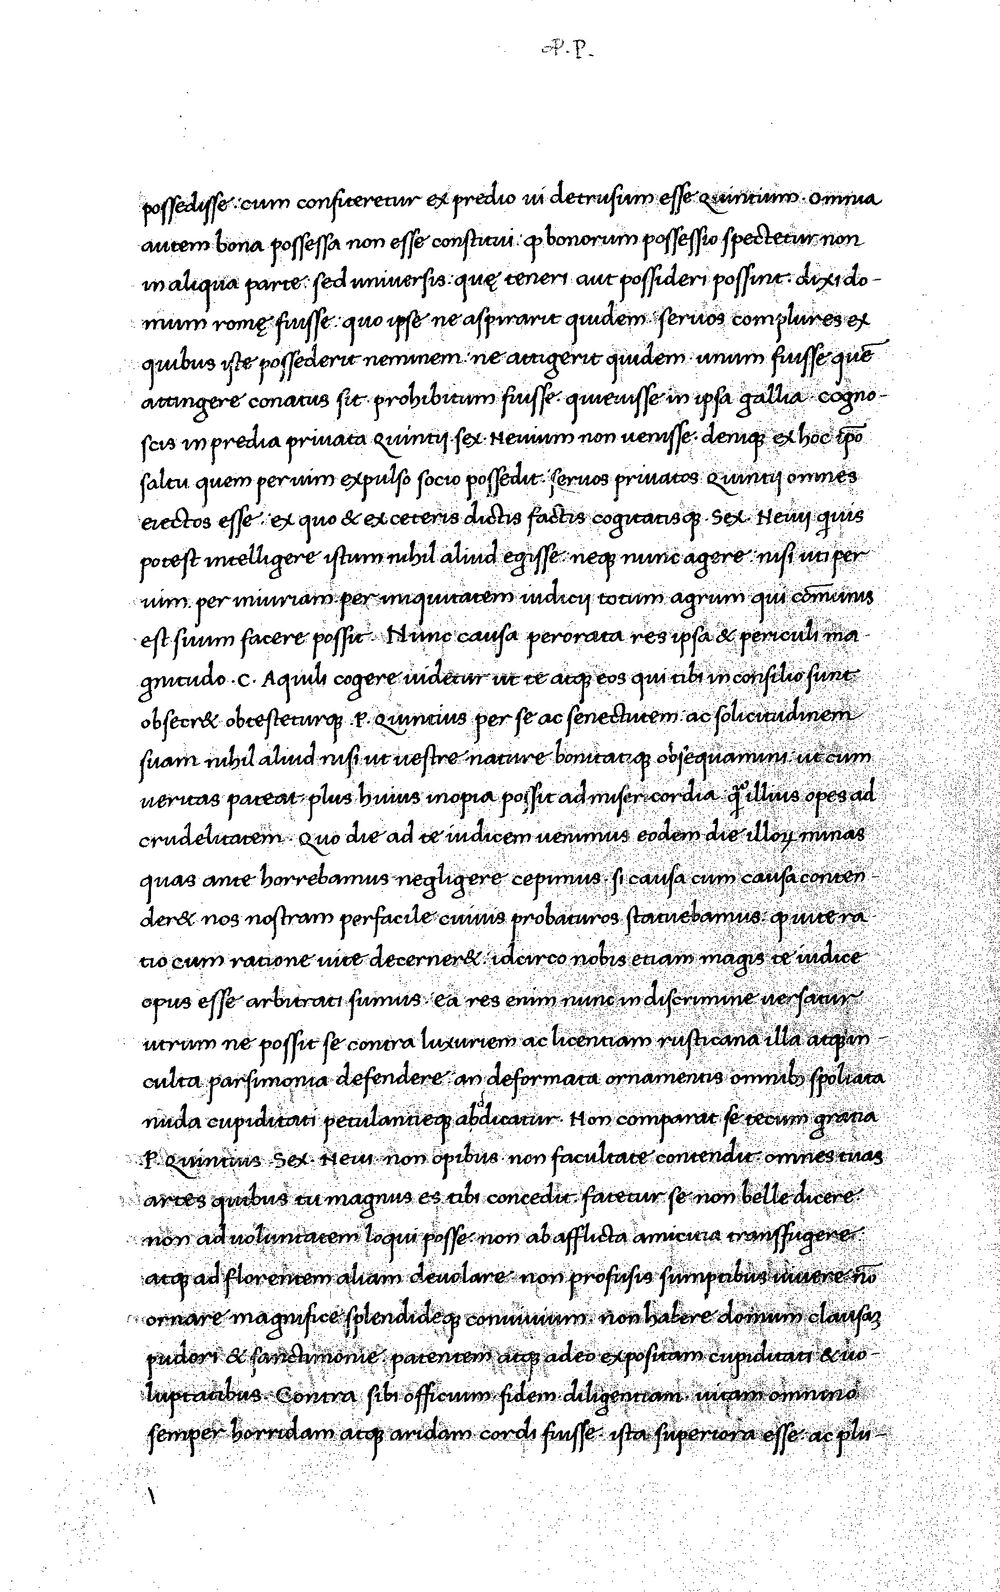 .P.P.
possedisse. cum confiteretur ex predio ui detrusum esse Quintium. Omnia
autem bona possessa non esse constitui. ꝙ bonorum possessio spectetur non
in aliqua parte. sed uniuersis. quę teneri aut possideri possint. dixi do-
mum romę fuisse. quo ipse ne aspirarit quidem. seruos complures ex
quibus iste possederit neminem. ne attigerit quidem. unum fuisse quē
attingere conatus sit. prohibitum fuisse. quieuisse in ipsa gallia. cogno-
scis in predia priuata Quintij sex. Neuium non uenisse. deniqꝫ ex hoc ip̄o
saltu quem per uim expulso socio possedit. seruos priuatos Quintij omnes
eiectos esse. ex quo & ex ceteris dictis factis cogitatisqꝫ Sex. Neuij quis
potest intelligere istum nihil aliud egisse. neqꝫ nunc agere. nisi uti per
uim. per iniuriam per iniquitatem iudicij totum agrum qui com̄unis
est suum facere possit. Nunc causa perorata res ipsa & periculi ma-
gnitudo .C. Aquili cogere uidetur ut te atqꝫ eos qui tibi in consilio sunt
obsecr& obtesteturqꝫ .P. Quintius per se ac senectutem. ac solicitudinem
suam nihil aliud nisi ut uestre nature bonitatiqꝫ obsequamini. ut cum
ueritas pateat. plus huius inopia possit ad misericordia. ꝗ̄ illius opes ad
crudelitatem. Quo die ad te iudicem uenimus eodem die illoꝝ minas
quas ante horrebamus negligere cepimus. si causa cum causa conten-
der& nos nostram perfacile cuiuis probaturos statuebamus. ꝙ uite ra
tio cum ratione uite decerner&. idcirco nobis etiam magis te iudice
opus esse arbitrati sumus. ea res enim nunc in discrimine uersatur
utrum ne possit se contra luxuriem ac licentiam rusticana illa atqꝫ in-
culta parsimonia defendere. an deformata ornamentis omnibꝫ spoliata
nuda cupiditati petulantieqꝫ abdicatur. Non comparat se tecum gratia
P. Quintius Sex. Neui. non opibus non facultate contendit. omnes tuas
artes quibus tu magnus es tibi concedit. fatetur se non belle dicere.
non ad uoluntatem loqui posse. non ab afflicta amicitia transfugere.
atqꝫ ad florentem aliam deuolare. non profusis sumptibus uiuere. nō
ornare magnifice splendideqꝫ conuiuium. non habere domum clausaꝫ
pudori & sanctimonie. patentem atqꝫ adeo expositam cupiditati & uo-
luptatibus. Contra sibi officium fidem diligentiam. uitam omnino
semper horridam atqꝫ aridam cordi fuisse. ista superiora esse. ac plu-